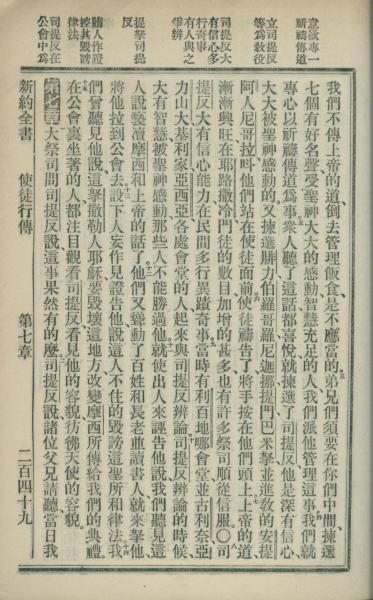 意欲專一
祈禱傳道
立司提反
等為教役
司提反大
有信心多
行奇事
有人與之
爭辯
提拏司提
反
賄人作證
控其毀謗
律法
司提反在
公會中為
我們不傳上帝的道、倒去管理飯食、是不應當的、弟兄們須要在你們中間、揀選
七個有好名聲、受聖神大大的感動、智慧充足的人、我們派他管理這事、我們就
專心以祈禱傳道為事、衆人聽了這話、都喜悅、就揀選了司提反、他是深有信心、
大大被聖神感動的、又揀選腓力伯羅哥羅尼迦挪提門巴米拏、並進教的安提
阿人尼哥拉、叫他們站在使徒面前、使徒禱告了、將手按在他們頭上、上帝的道、
漸漸興旺、在耶路撒冷門徒的數目、加增的甚多、也有許多祭司順從信服〇司
提反大有信心能力、在民間多行異蹟奇事、當時有利百地哪會堂、並古利奈亞
力山大基利家亞西亞各處會堂的人起來、與司提反辨論、司提反辨論的時候、
大有智慧、被聖神感動、那些人不能勝過他、就使出人來誣告他說、我們聽見這
人說褻瀆摩西和上帝的話了、他們又聳動了百姓和長老並讀書人、就來拏他、
將他拉到公會去、設下人妄作見證、告他說、這人不住的毀謗這聖所和律法、我
們曾聽見他說、這拏撒勒人耶穌、要毀壞這地方、改變摩西所傳給我們的典禮、
在公會裏坐著的人、都注目觀看司提反、看見他的容貌、彷彿天使的容貌、
第七章 大祭司問司提反說、這事果然有的麽、司提反說、諸位父兄請聽、當日我
新約全書 使徒行傳 第七章 二百四十九